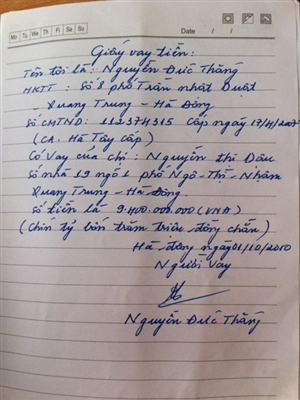 Mo Tu We Th Fr Sa Su
Date / /
Giấy vay tiền:
Tên tôi là: Nguyễn Đức Thắng
HKTT: Số 8 phố Trần nhật Duật
Quang Trung - Hà Đông
Số CMTND: 112374315 Cấp ngày 17/4/200
(CA. Hà Tây Cấp)
Có Vay của chị: Nguyễn thị Dậu
Số nhà 19 ngõ 1 phố Ngô-Thì-Nhậm
Quang Trung - Hà Đông.
Số tiền là 9.400.000.000 (VNĐ)
(Chín tỷ bốn trăm triệu đồng chẵn)
Hà đông ngày 01/10/2010
Người Vay
Nguyễn Đức Thắng